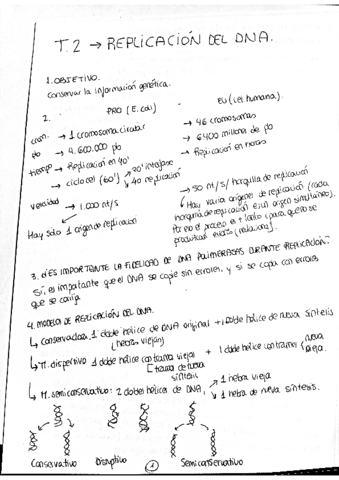 T.2 → REPLICACIÓN DEL DNA.
1. OBJETIVO.
Conservar la información genética.
2. PRO (E. coli) EU (cel. humana).
crom. → 1 cromosoma circular → 46 cromosomas
pb → 4.600.000 pb → 6400 millones de pb
tiempo → Replicación en 40' → Replicación en horas
→ ciclo cel (60') → 20' interfase
↘ 40 replicación
velocidad → 1.000 nt/s → 50 nt/s/horquilla de replicación
Hay sólo 1 origen de replicación → Hay varios orígenes de replicación (cada
horquilla de replicación es un origen simultáneo).
Por eso el proceso es + lento (para que no se
produzcan
3. ¿ES IMPORTANTE LA FIDELIDAD DE DNA POLIMERASAS DURANTE REPLICACIÓN?
Sí, es importante que el DNA se copie sin errores, y si se copia con errores
que se corrija
4. MODELOS DE REPLICACIÓN DEL DNA.
↳ Conservadora: 1 doble hélice de DNA original + 1 doble hélice de nueva síntesis
(hebras viejas)
↳ M. dispersivo 1 doble hélice con tramos viejos + 1 doble hélice con tramos nueva
vieja.
[tramos de nueva
síntesis
↳ M. semiconservativo: 2 dobles hélices de DNA, → 1 hebra vieja
↘ 1 hebra de nueva síntesis.
Conservativo Disruptivo 1 Semiconservativo